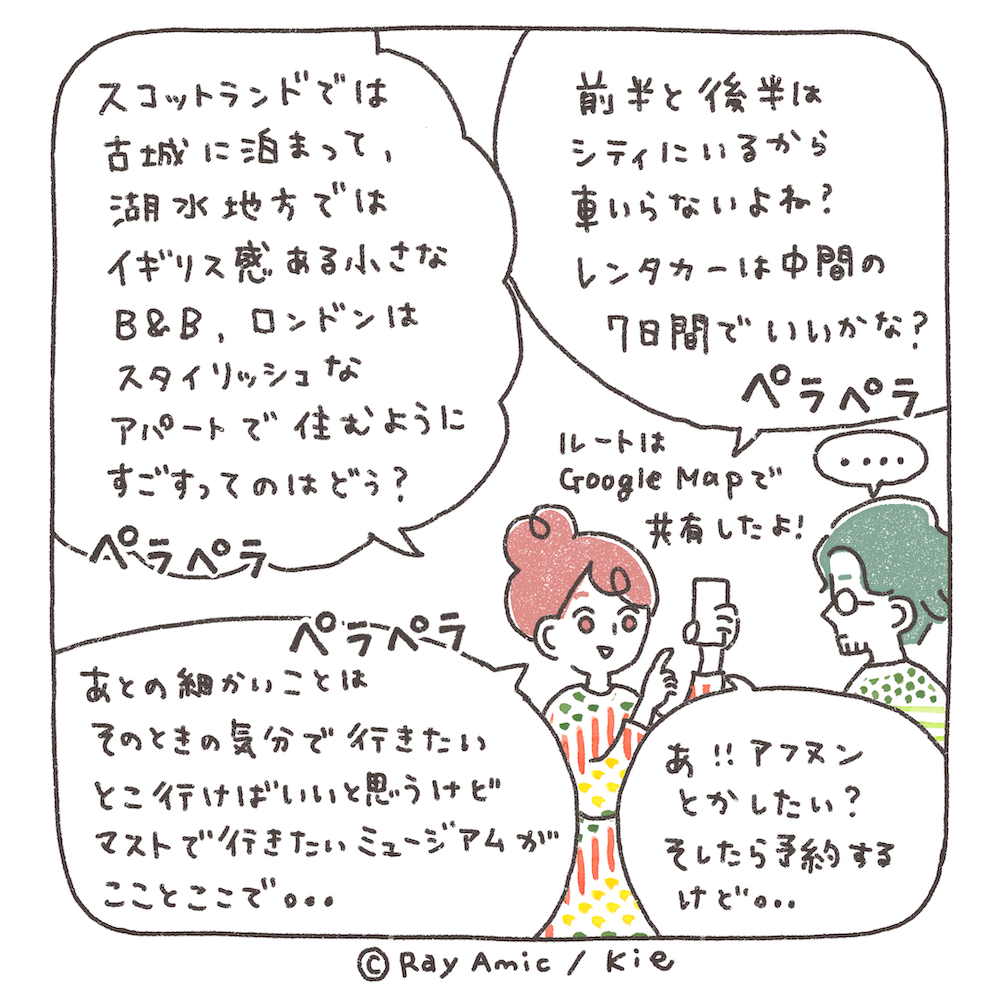 前半と後半は
シティにいるから
車いらないよね?
レンタカーは中間の
7日間でいいかな?
ペラペラ
スコットランドでは
古城に泊まって、
湖水地方では
イギリス感ある小さな
B&B、ロンドンは
スタイリッシュな
アパートで住むように
すごすってのはどう?
ペラペラ
ルートは
Google Mapで
共有したよ!
....
ペラペラ
あとの細かいことは
そのときの気分で行きたい
とこ行けばいいと思うけど
マストで行きたいミュージアムが
こことここで。。。
あ!!アフヌン
とかしたい?
そしたら予約する
けど。。。
©Ray Amic / Kie